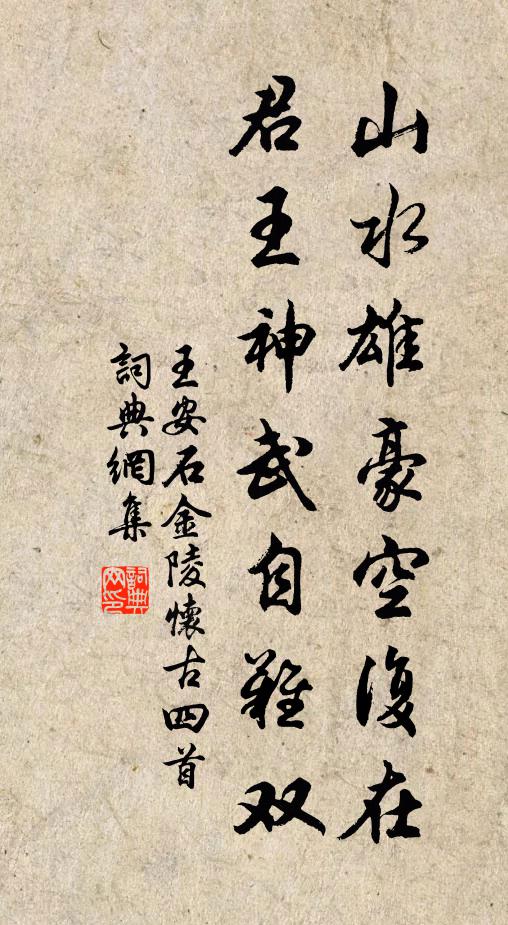 山水雄豪空復在
君王神武自難双
王安石金陵懷古四首
詞典網集
詞典网印